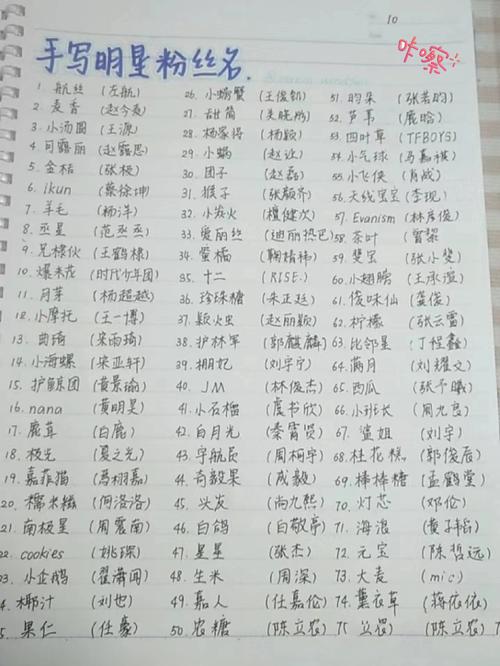 10
咔嚓
手写明星粉丝名.
1. 航丝 (左航)
2. 麦香 (赵今麦)
3. 小汤圆 (王源)
4. 可露丽 (赵露思)
5. 金桔 (张极)
6. ikun (蔡徐坤)
7. 羊毛 (杨洋)
8. 丞星 (范丞丞)
9. 兄棣伙 (王鹤棣)
10. 爆米花 (时代少年团)
11. 月芽 (杨超越)
12. 小摩托 (王一博)
13. 曲琦 (宋雨琦)
14. 小海螺 (宋亚轩)
15. 护鲸团 (黄景瑜)
16. nana (黄明昊)
17. 鹿茸 (白鹿)
18. 极光 (夏之光)
19. 嘉菲猫 (焉栩嘉)
20. 糯米糍 (何洛洛)
21. 南极星 (周震南)
22. cookies (姚琛)
03. 小企鹅 (翟潇闻)
4. 椰汁 (刘也)
5. 果仁 (任豪)
26. 小螃蟹 (王俊凯)
27. 甜筒 (吴晓鹏)
28. 杨家得 (杨颖)
29. 小蜗 (赵让)
30. 团子 (赵磊)
31. 猴子 (张颜齐)
32. 小炭火 (檀健次)
33. 爱丽丝 (迪丽热巴)
34. 萤橘 (鞠婧祎)
35. 十二 (RISE.)
36. 珍珠糖 (朱正廷)
37. 颖火虫 (赵丽颖)
38. 护林军 (郭麒麟)
39. 棚妃 (刘宇宁)
40. JM (林俊杰)
41. 小石榴 (虞书欣)
42. 白月光 (秦霄贤)
43. 宇航员 (周柯宇)
44. 奇毅果 (成毅)
45. 头发 (尚九熙)
46. 白鸽 (白敬亭)
47. 星星 (张杰)
48. 生米 (周深)
49. 嘉人 (任嘉伦)
50. 农糖 (陈立农)
51. 昀朵 (张若昀)
52. 芦苇 (鹿晗)
53. 四叶草 (TFBOYS)
54. 小气球 (马嘉祺)
55. 小飞侠 (肖战)
56. 天线宝宝 (李现)
57. Evanism (林彦俊)
58. 茶叶 (曾黎)
59. 斐宝 (张小斐)
60. 小翅膀 (王承渲)
61. 俊味仙 (龚俊)
62. 柠檬 (张云雷)
63. 比邻星 (丁程鑫)
64. 满月 (刘耀文)
65. 西瓜 (张予曦)
66. 小班长 (周九良)
67. 盐姐 (刘宇)
68. 桂花糕 (郭俊辰)
69. 棒棒糖 (孟鹤堂)
70. 灯芯 (邓伦)
71. 海浪 (黄子韬)
72. 元宝 (陈哲远)
73. 大麦 (mic)
74. 薰衣草 (蒋依依)
75 立农 (陈立农)